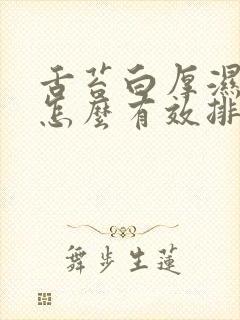 舌苔白厚濕
怎麼有效排
舞步生蓮